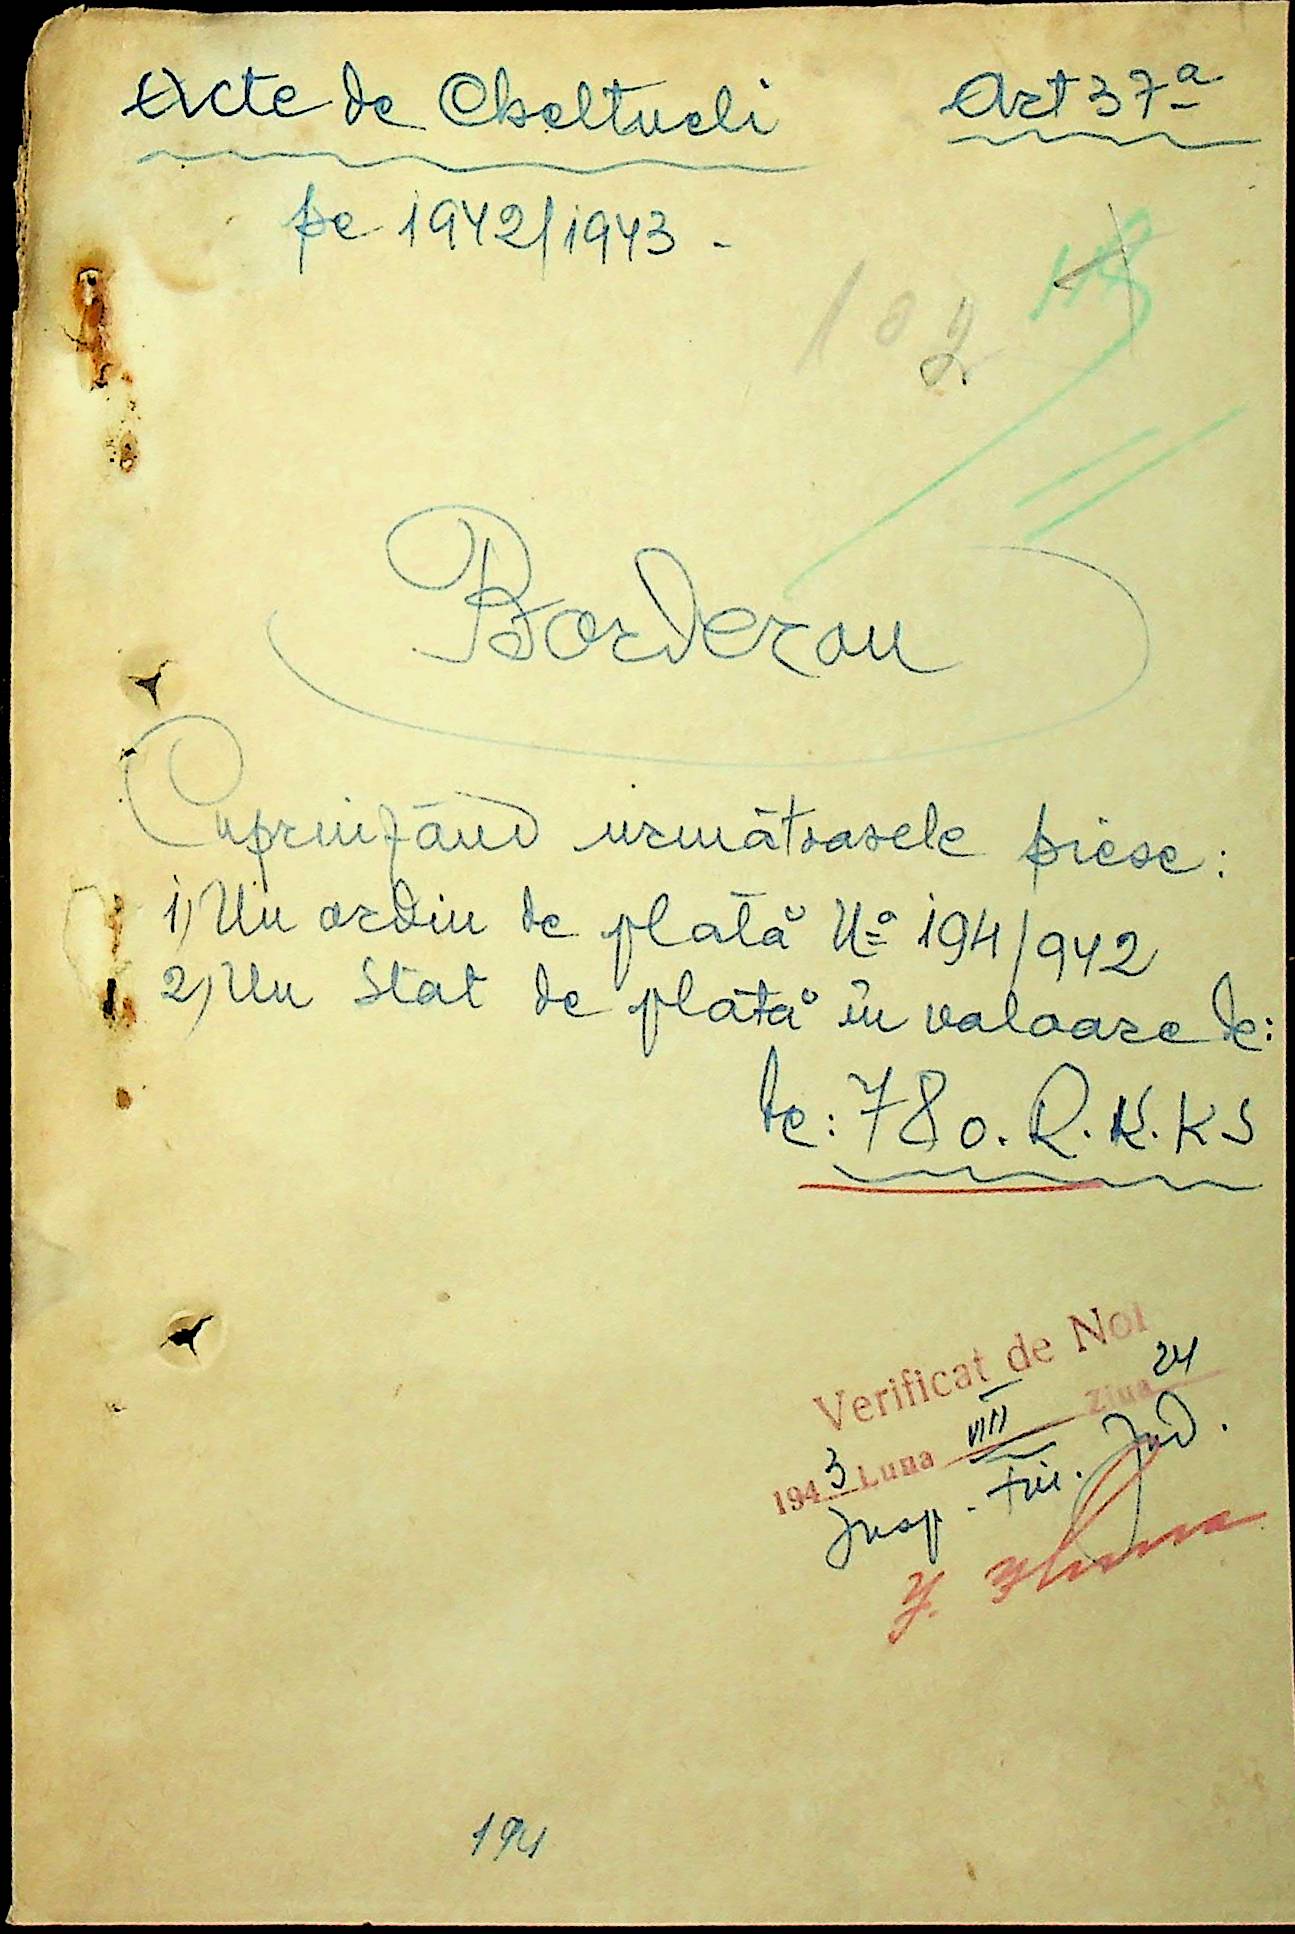 Acte de Cheltueli Art 37ª
pe 1942/1943 -
102
Borderou
Cuprinzând următoarele piese:
1) Un ordin de plată Nº 194/942
2) Un stat de plată în valoare de:
de: 780. R.K.KS
Verificat de Noi
1943 Luna VIII Ziua 24
Insp. Fin. Jud.
194